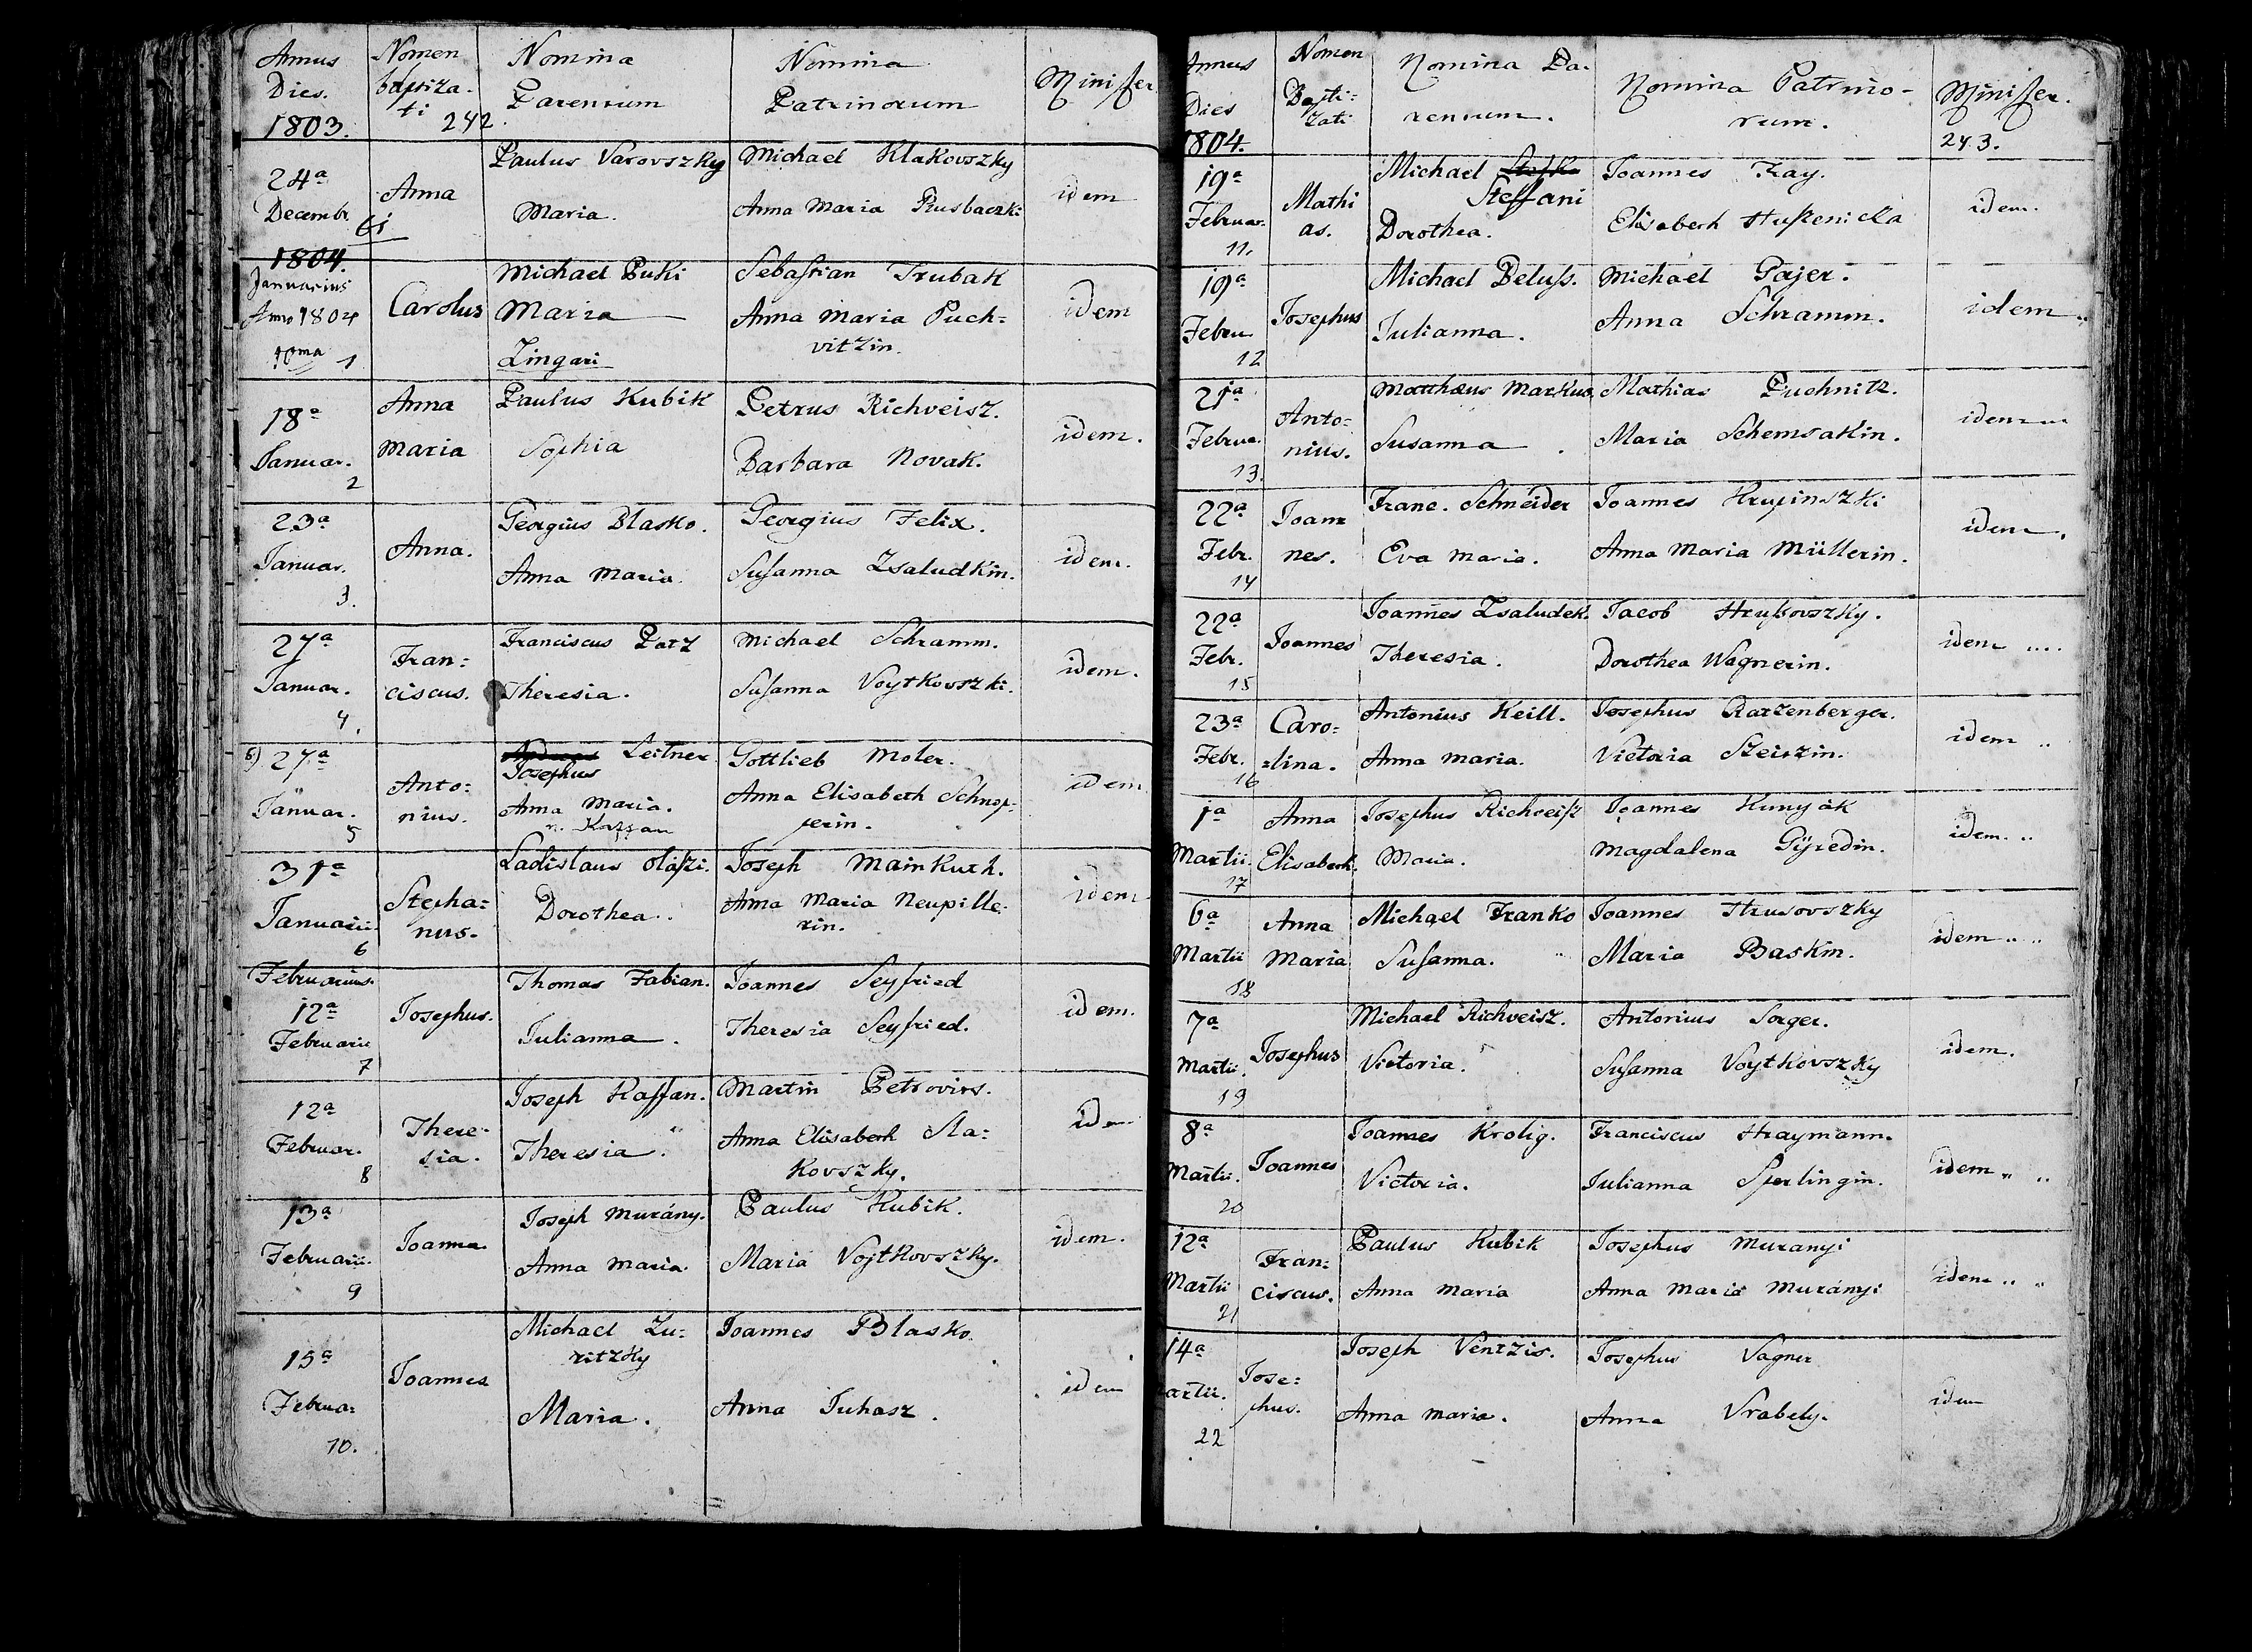 Annus
Dies.
1803.
Nomen
baptiza-
ti 242
Nomina
Parentum
Nomina
Patrinorum
Minister
24ª
Decembr.
61
Anna
Paulus Varovszky
Maria.
Michael Klakovszky
Anna Maria Rusbaczki
idem
1804.
Januarius
Anno 1804
1
Carolus
Michael Puki
Maria
Zingari
Sebastian Trubak
Anna Maria Puch=
vitzin.
idem
18ª
Januar.
2
Anna
Maria
Paulus Kubik
Sophia
Petrus Richveisz.
Barbara Novak.
idem.
23ª
Januar.
3.
Anna.
Georgius Blasko.
Anna Maria.
Georgius Felix.
Susanna Zsaludkin.
idem.
27ª
Januar.
4.
Fran=
ciscus.
Franciscus Patz
Theresia.
Michael Schramm.
Susanna Voytkovszki.
idem.
27ª
Januar.
5
Anto=
nius.
Leitner
Josephus
Anna Maria.
Gottlieb Moler.
Anna Elisabeth Schnop=
ferin.
idem
31ª
Januarii
6
Stepha=
nus.
Ladislaus Olaszi.
Dorothea.
Joseph Mainkuth.
Anna Maria Neupille=
rin.
idem
Februarius.
12ª
Februarii
7
Josephus.
Thomas Fabian.
Julianna.
Joannes Seyfried
Theresia Seyfried.
idem.
12ª
Februar.
8
There=
sia.
Joseph Kaffan.
Theresia.
Martin Petrovics.
Anna Elisabeth Sla=
kovszky.
idem
13ª
Februarii.
9
Joanna
Joseph Murány.
Anna Maria.
Paulus Kubik.
Maria Vojtkovszky.
idem.
15ª
Februa=
10.
Joannes
Michael Zu=
ritzky
Maria.
Joannes Blasko.
Anna Juhasz.
idem
Annus
Dies
1804.
Nomen
Bapti=
zati
Nomina Pa=
rentum.
Nomina Patrino-
rum.
Minister.
243.
19ª
Februar.
11.
Mathi
as.
Michael
Steffani
Dorothea.
Joannes Kray.
Elisabeth Huszenicka
idem.
19ª
Febru
12
Josephus
Michael Beluss.
Julianna.
Michael Pajer.
Anna Schramm.
idem
21ª
Februa.
13.
Anto=
nius.
Matthæus Markus.
Susanna.
Mathias Puchnitz.
Maria Schemsakin.
idem
22ª
Febr.
14
Joan
nes.
Franc. Schneider
Eva Maria.
Joannes Krupinszki
Anna Maria Müllerin.
idem.
22ª
Febr.
15
Joannes
Joannes Zsaludek.
Theresia.
Jacob Hrubovszky.
Dorothea Wagnerin.
idem
23ª
Febr.
16
Caro=
=lina.
Antonius Keill.
Anna Maria.
Josephus Ratzenberger.
Victoria
idem
1ª
Martii.
17
Anna
Elisabeth.
Josephus Richveisz
Maria.
Joannes Kunyák
Magdalena Gÿredin.
idem.
6ª
Martii
18
Anna
Maria
Michael Franko
Susanna.
Joannes Hrusovszky
Maria Baskin.
idem
7ª
Martii.
19
Josephus
Michael Richveisz.
Victoria.
Antonius Sorger.
Susanna Voytkovszky
idem.
8ª
Martii.
20
Joannes
Joannes Krolig.
Victoria.
Franciscus Haymann.
Julianna Sperlingin.
idem
12ª
Martii
21
Fran=
ciscus.
Paulus Kubik
Anna Maria
Josephus Muranyi
Anna Maria Murányi
idem
14ª
artii.
22
Jose=
phus.
Joseph Ventzis.
Anna Maria.
Josephus Vagner
Anna Vrabely.
idem